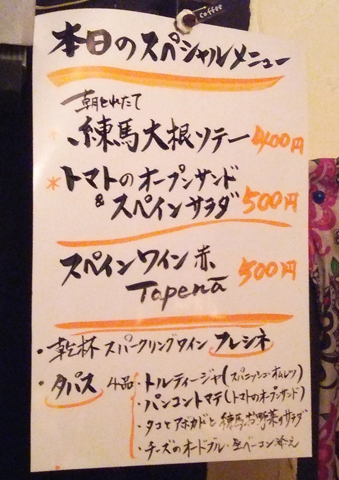 coffee
本日のスペシャルメニュー
朝とれたて
練馬大根ソテー 400円
* トマトのオープンサンド
& スペインサラダ 500円
スペインワイン 赤 500円
Tapenā
・乾杯 スパークリングワイン フレシネ
・タパス 4品 ・トルティージャ(スパニッシュ・オムレツ)
・パンコントマテ(トマトのオープンサンド)
・タコとアボカドと練馬お野菜のサラダ
・チーズのオードブル・生ベーコン添え